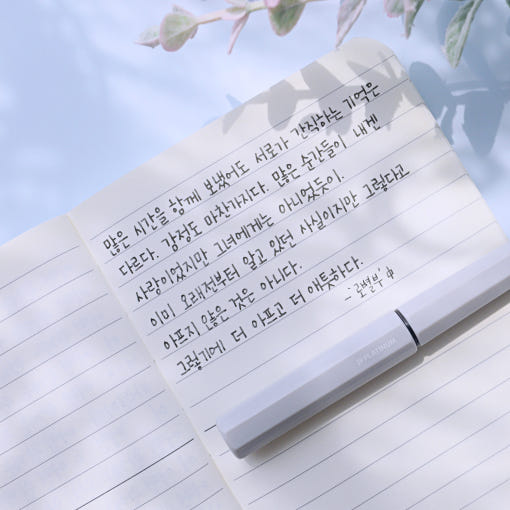 많은 시간을 함께 보냈어도 서로가 간직하는 기억은
다르다. 감정도 마찬가지다. 많은 순간들이 내겐
사랑이었지만 그녀에게는 아니었듯이.
이미 오래전부터 알고 있던 사실이지만 그렇다고
아프지 않은 것은 아니다.
그렇기에 더 아프고 더 애틋하다.
PLATINUM